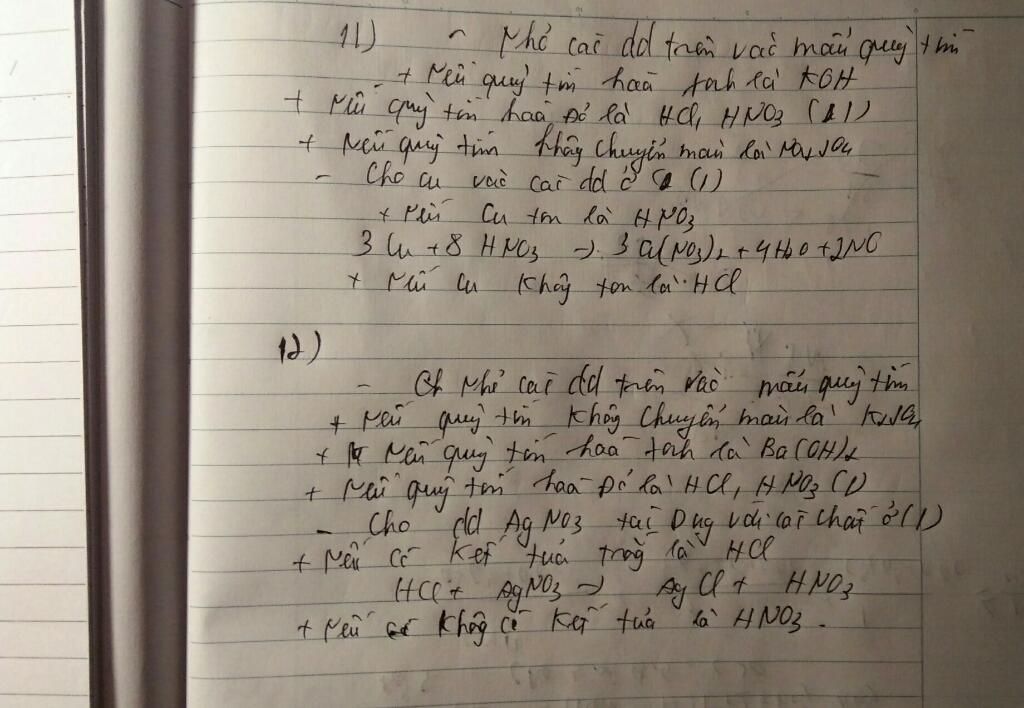 11) - Nhỏ các dd trên vào mẫu quỳ tím
+ Nếu quỳ tím hoá xanh là KOH
+ Nếu quỳ tím hoá đỏ là HCl, HNO3 (1)
+ Nếu quỳ tím không chuyển màu là Na2SO4
- Cho Cu vào các dd ở (1)
+ Nếu Cu tan là HNO3
3 Cu + 8 HNO3 → 3 Cu(NO3)2 + 4H2O + 2NO
+ Nếu Cu không tan là HCl
12)
- Nhỏ các dd trên vào mẫu quỳ tím
+ Nếu quỳ tím không chuyển màu là K2SO4
+ Nếu quỳ tím hoá xanh là Ba(OH)2
+ Nếu quỳ tím hoá đỏ là HCl, HNO3 (1)
- Cho dd AgNO3 tác dụng với các chất ở (1)
+ Nếu có kết tủa trắng là HCl
HCl + AgNO3 → AgCl + HNO3
+ Nếu không có kết tủa là HNO3.